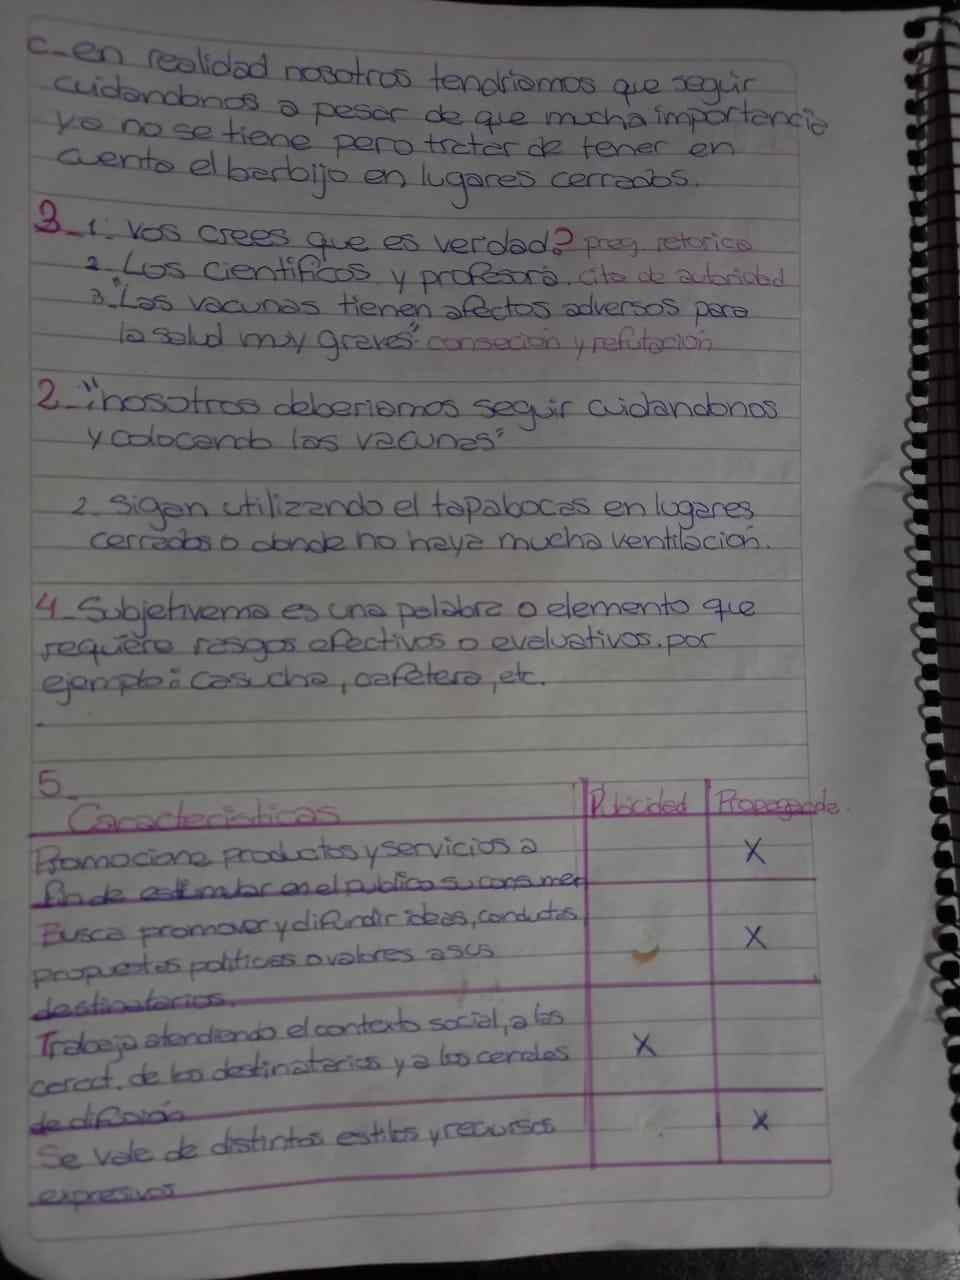 c- en realidad nosotros tendriamos que seguir
cuidandonos a pesar de que mucha importancia
ya no se tiene pero tratar de tener en
cuenta el barbijo en lugares cerrados.
3- 1. Vos crees que es verdad? preg. retorica
2- Los cientificos y profesora. cita de autoridad
3. "Las vacunas tienen afectos adversos para
la salud muy graves": conseción y refutación
2- 1. "nosotros deberiamos seguir cuidandonos
y colocando las vacunas"
2- Sigan utilizando el tapabocas en lugares
cerrados o donde no haya mucha ventilación.
4- Subjetivema es una palabra o elemento que
requiere rasgos efectivos o evaluativos. por
ejemplo: casucha, cafetera, etc.
5-
Características Publicidad Propaganda.
Promociona productos y servicios a X
fin de estimular en el publico su consumer
Busca promover y difundir ideas, conductas X
propuestas politicas o valores a sus
destinatarios.
Trabaja atendiendo el contexto social, a las X
caract. de los destinatarios y a los canales
de difusión
Se vale de distintos estilos y recursos X
expresivos